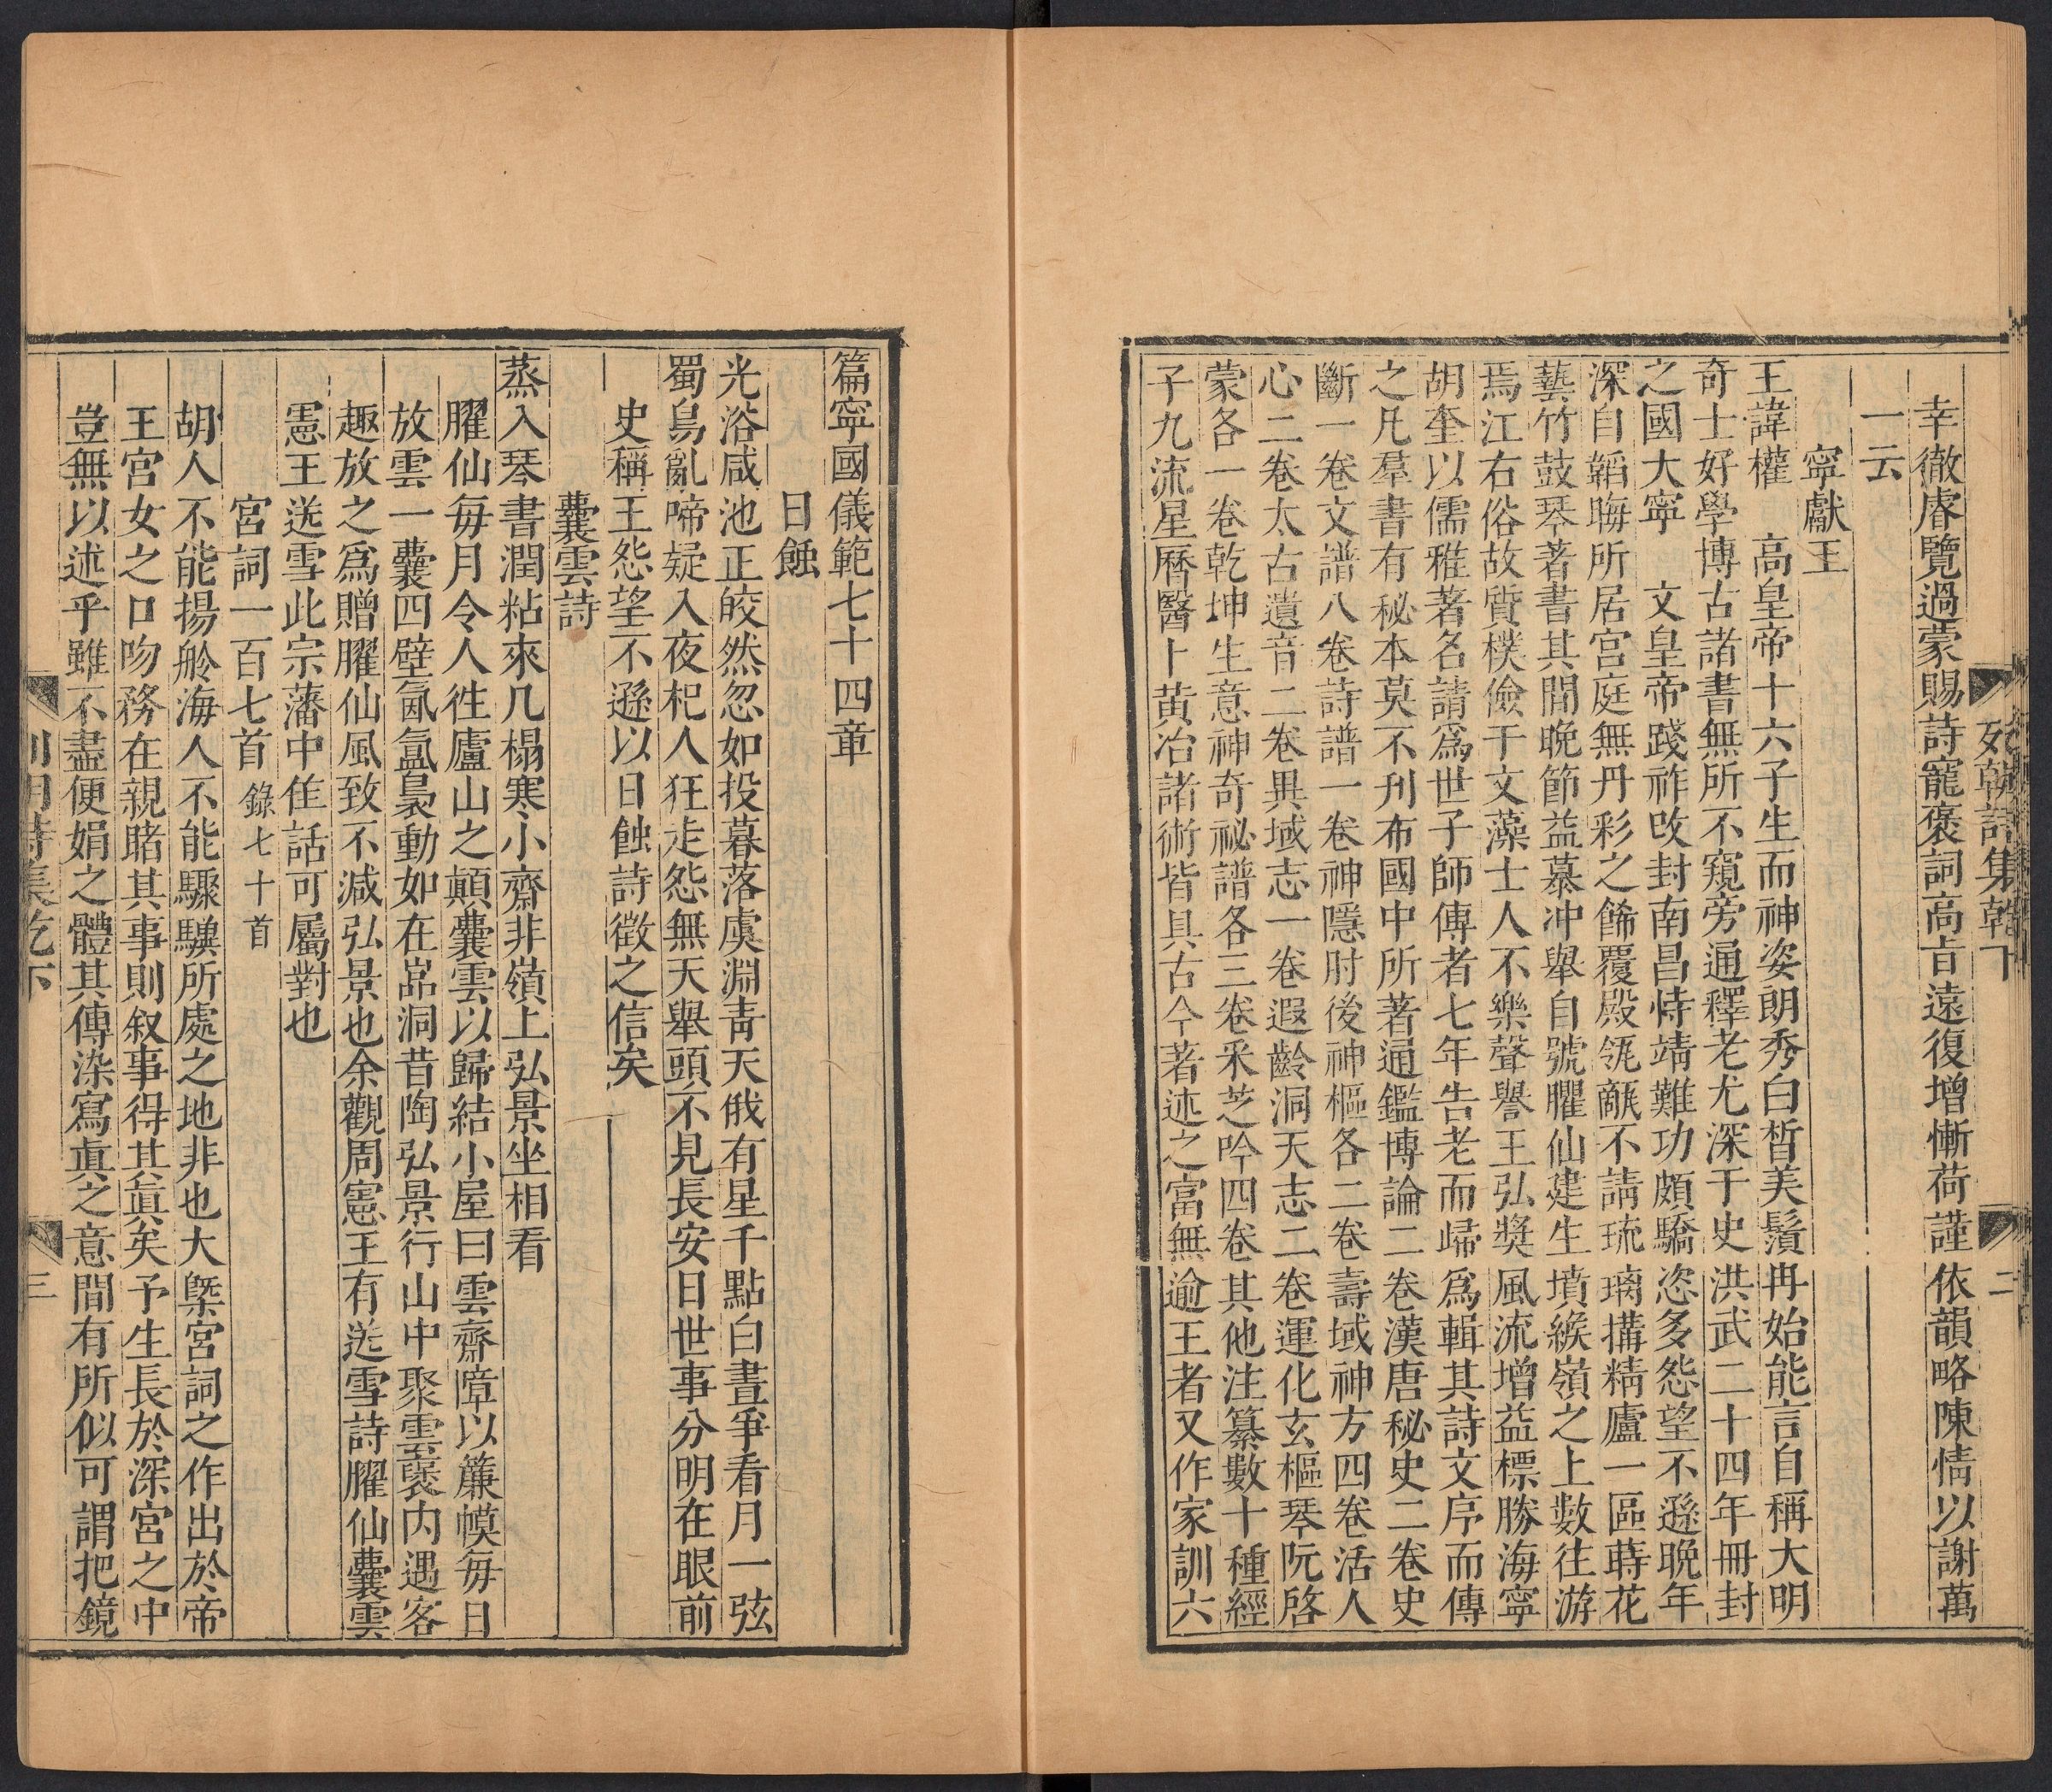 幸徹睿覽過蒙賜詩寵褒詞高旨遠復增慚荷謹依韻略陳情以謝萬
一云
寧獻王
王諱權 高皇帝十六子生而神姿朗秀白晳美鬚冉始能言自稱大明
奇士好學博古諸書無所不窺旁通釋老尤深于史洪武二十四年冊封
之國大寧 文皇帝踐祚改封南昌恃靖難功頗驕恣多怨望不遜晩年
深自韜晦所居宮庭無丹彩之餙覆殿瓴甋不請琉璃搆精廬一區蒔花
藝竹鼓琴著書其間晩節益慕冲舉自號臞仙建生墳緱嶺之上數往游
焉江右俗故質樸儉于文藻士人不樂聲譽王弘奬風流增益標勝海寧
胡奎以儒雅著名請爲世子師傅者七年告老而歸爲輯其詩文序而傳
之凡羣書有秘本莫不刋布國中所著通鑑博論二卷漢唐秘史二卷史
斷一卷文譜八卷詩譜一卷神隱肘後神樞各二卷壽域神方四卷活人
心二卷太古遺音二卷異域志一卷遐齡洞天志二卷運化玄樞琴阮啓
蒙各一卷乾坤生意神奇秘譜各三卷采芝吟四卷其他注纂數十種經
子九流星曆醫卜黃冶諸術皆具古今著述之富無逾王者又作家訓六
列朝詩集乾下
二
篇寧國儀範七十四章
日蝕
光浴咸池正皎然忽如投暮落虞淵靑天俄有星千點白晝爭看月一弦
蜀鳥亂啼疑入夜杞人狂走怨無天舉頭不見長安日世事分明在眼前
史稱王怨望不遜以日蝕詩徵之信矣
囊雲詩
蒸入琴書潤粘來几榻寒小齋非嶺上弘景坐相看
臞仙每月令人徃廬山之顚囊雲以歸結小屋曰雲齋障以簾幙每日
放雲一囊四壁氤氲裊動如在嵓洞昔陶弘景行山中聚雲褏内遇客
趣放之爲贈臞仙風致不減弘景也余觀周憲王有送雪詩臞仙囊雲
憲王送雪此宗藩中隹話可屬對也
宮詞一百七首 錄七十首
胡人不能揚舲海人不能驟驥所處之地非也大槩宮詞之作出於帝
王宮女之口吻務在親睹其事則叙事得其眞矣予生長於深宮之中
豈無以述乎雖不盡便娟之體其傳染寫眞之意間有所似可謂把鏡
列朝詩集乾下
三